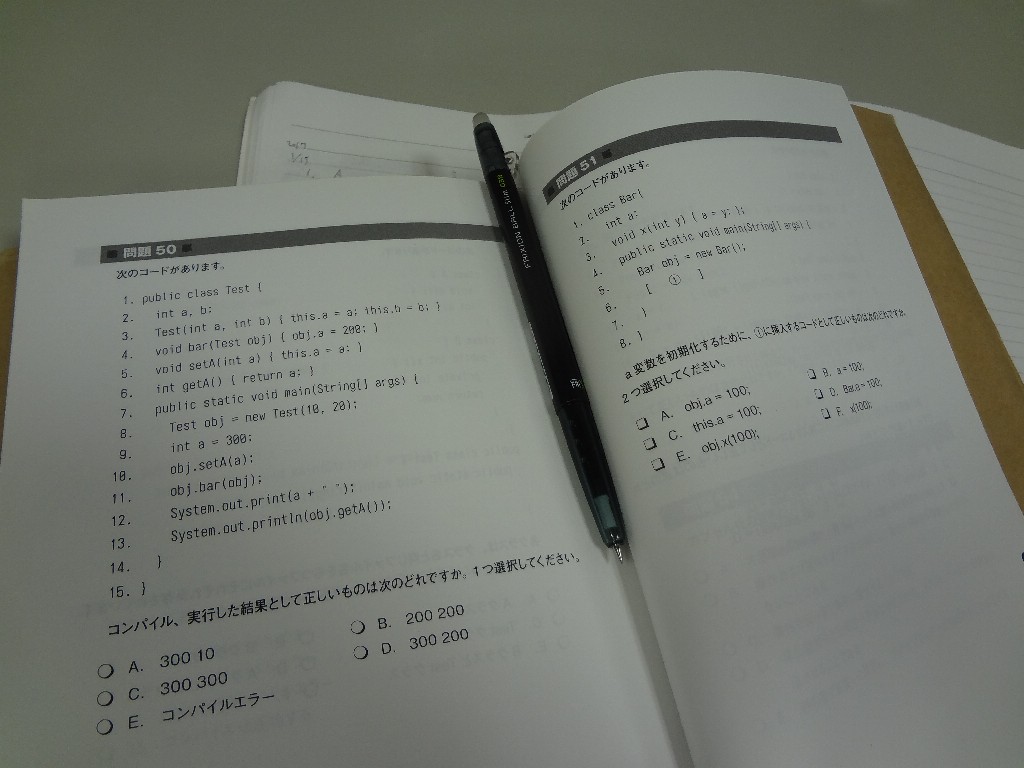 問題 50
次のコードがあります。
1. public class Test {
2. int a, b;
3. Test(int a, int b) { this.a = a; this.b = b; }
4. void bar(Test obj) { obj.a = 200; }
5. void setA(int a) { this.a = a; }
6. int getA() { return a; }
7. public static void main(String[] args) {
8. Test obj = new Test(10, 20);
9. int a = 300;
10. obj.setA(a);
11. obj.bar(obj);
12. System.out.print(a + " ");
13. System.out.println(obj.getA());
14. }
15. }
コンパイル、実行した結果として正しいものは次のどれですか。1つ選択してください。
A. 300 10
B. 200 200
C. 300 300
D. 300 200
E. コンパイルエラー
FRIXION BALL SLIM
問題 51
次のコードがあります。
1. class Bar{
2. int a;
3. void x(int y) { a = y; };
4. public static void main(String[] args) {
5. Bar obj = new Bar();
6. [ ① ]
7. }
8. }
a 変数を初期化するために、①に挿入するコードとして正しいものは次のどれですか。
2つ選択してください。
A. obj.a = 100;
B. a = 100;
C. this.a = 100;
D. Bar.a = 100;
E. obj.x(100);
F. x(100);